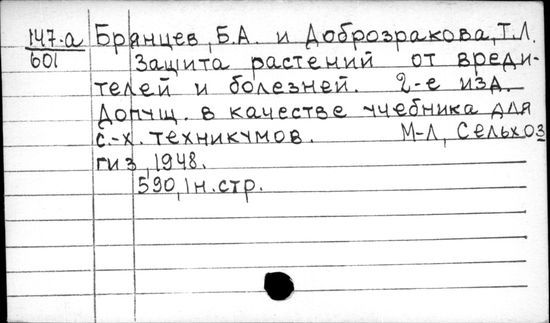 147-а Брянцев, Б.А. и Доброзракова, Т.Л.
601 Защита растений от вреди-
телей и болезней. 2-е изд.
Допущ. в качестве учебника для
с.-х. техникумов. М-Л, Сельхоз
гиз, 1948.
590, 1 н. стр.